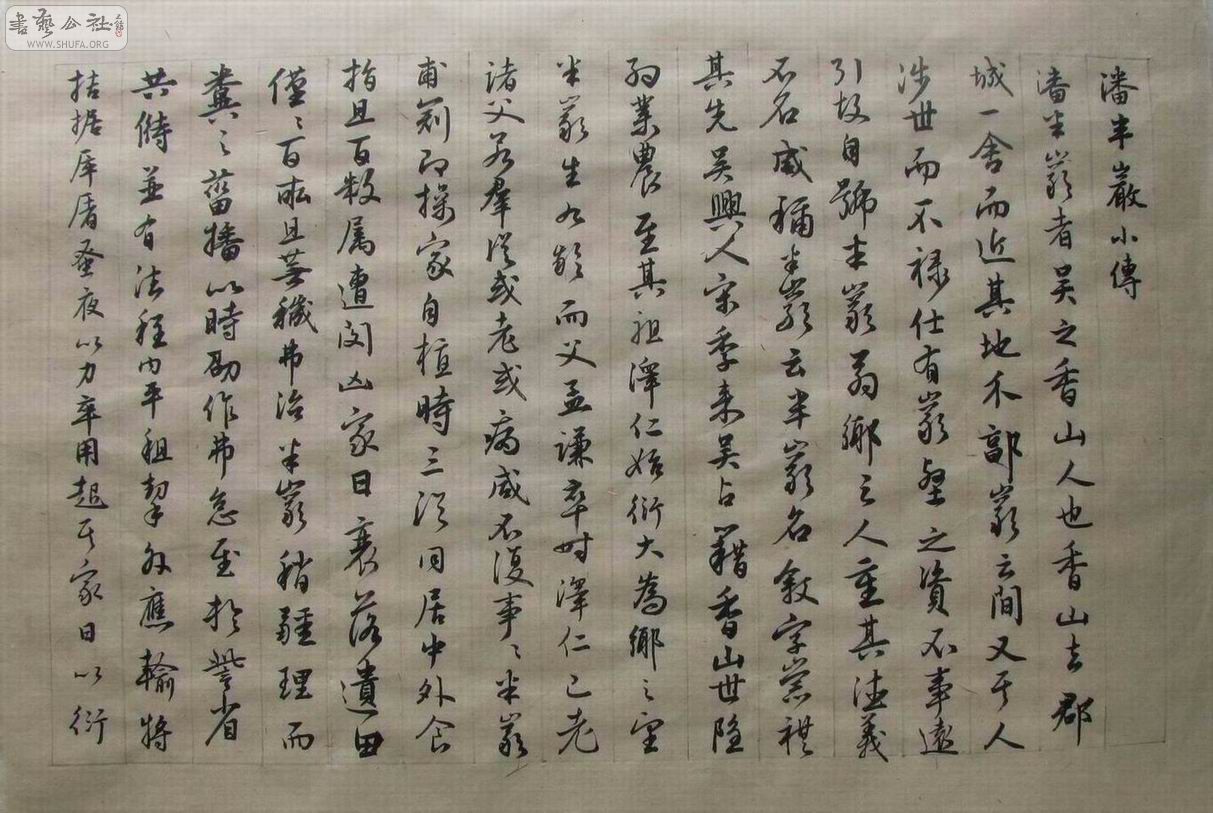 書藝公社
WWW.SHUFA.ORG
潘半巖小傳
潘半巖者吳之香山人也香山去郡
城一舍而近其地不鄙巖云間又其人
涉世而不祿仕有巖壑之資不事遠
引故自號半巖翁鄉之人重其德義
不名咸稱半巖云半巖名叙字崇禮
其先吳興人宋季來吳占籍香山世隱
約業農至其祖澤仁始衍大為鄉之望
半巖生九齡而父孟謙卒時澤仁已老
諸父若羣從或老或病咸不復事〻半巖
甫冠即操家自植時三從同居中外食
指且百數属遭閔凶家日衰落遺田
僅〻百畝且蕪穢弗治半巖稍疆理而
糞之菑播以時劭作弗怠至於訾省
共偫並有法程内平租挈外應輸將
拮据庠屠蚤夜以力卒用起其家日以衍